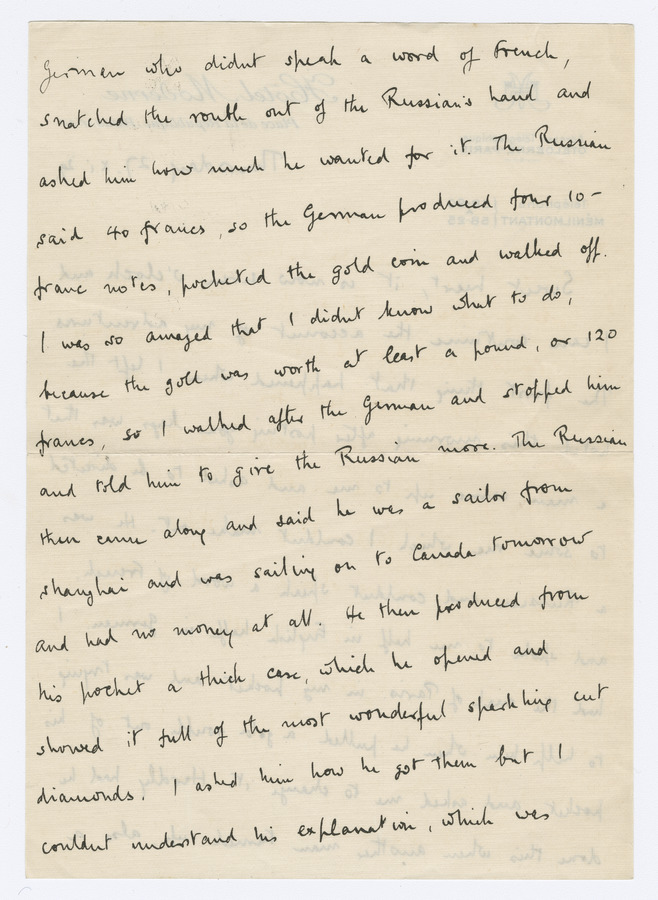 German who didnt speak a word of French,
snatched the rouble out of the Russian's hand and
asked him how much he wanted for it. The Russian
said 40 francs, so the German produced four 10-
franc notes, pocketed the gold coin and walked off.
I was so amazed that I didnt know what to do,
because the gold was worth at least a pound, or 120
francs, so I walked after the German and stopped him
and told him to give the Russian more. The Russian
then came along and said he was a sailor from
Shanghai and was sailing on to Canada tomorrow
and had no money at all. He then produced from
his pocket a thick case, which he opened and
showed it full of the most wonderful sparkling cut
diamonds. I asked him how he got them but I
couldnt understand his explanation, which was